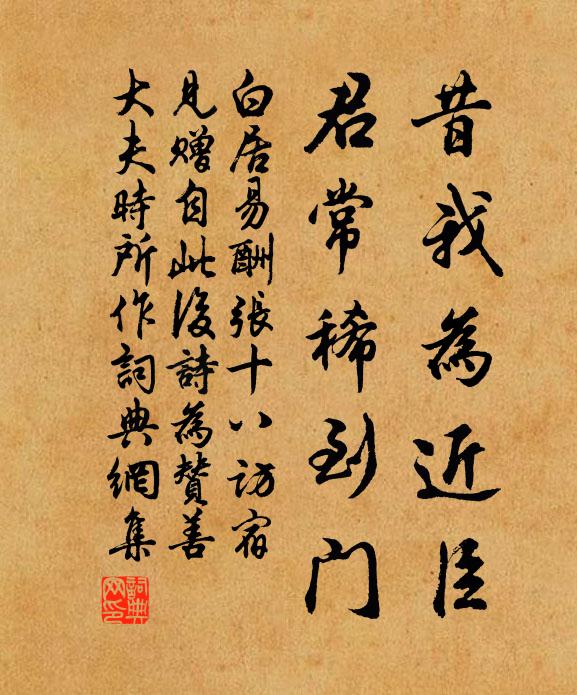 昔我為近臣
君常稀到門
白居易酬張十八訪宿
見贈自此後詩為贊善
大夫時所作詞典網集
詞典網印